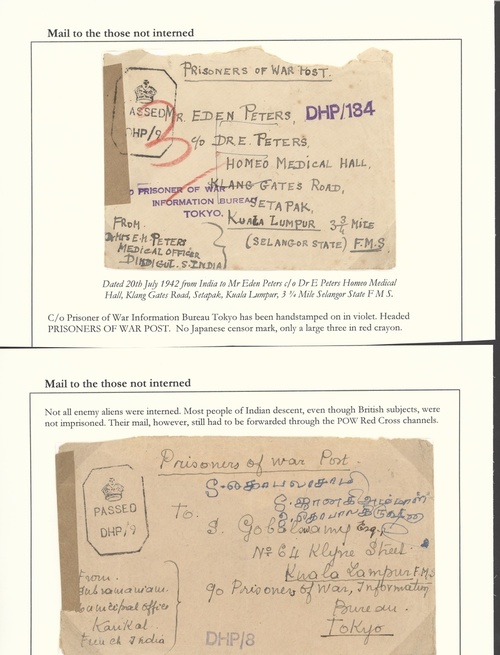 Mail to the those not interned
PRISONERS OF WAR POST.
PASSED
DHP/9
3
MR. EDEN PETERS,
DHP/184
c/o DR E. PETERS,
HOMEO MEDICAL HALL,
KLANG GATES ROAD,
PRISONER OF WAR
INFORMATION BUREAU
TOKYO.
SETAPAK,
KUALA LUMPUR 3 3/4 MILE
(SELANGOR STATE) F.M.S.
FROM.
PETERS
MEDICAL OFFICER
DINDIGUL. S. INDIA
Dated 20th July 1942 from India to Mr Eden Peters c/o Dr E Peters Homeo Medical
Hall, Klang Gates Road, Setapak, Kuala Lumpur, 3 ¾ Mile Selangor State F M S.
C/o Prisoner of War Information Bureau Tokyo has been handstamped on in violet. Headed
PRISONERS OF WAR POST. No Japanese censor mark, only a large three in red crayon.
Mail to the those not interned
Not all enemy aliens were interned. Most people of Indian descent, even though British subjects, were
not imprisoned. Their mail, however, still had to be forwarded through the POW Red Cross channels.
Prisoners of war Post.
PASSED
DHP/9
To:
Esq.,
No 64 Klyne Street.
Kuala Lumpur F.M.S
c/o Prisoners of War, Information
Bureau.
Tokyo
From.
Subramaniam.
Municipal officer
Karikal
French India
DHP/8